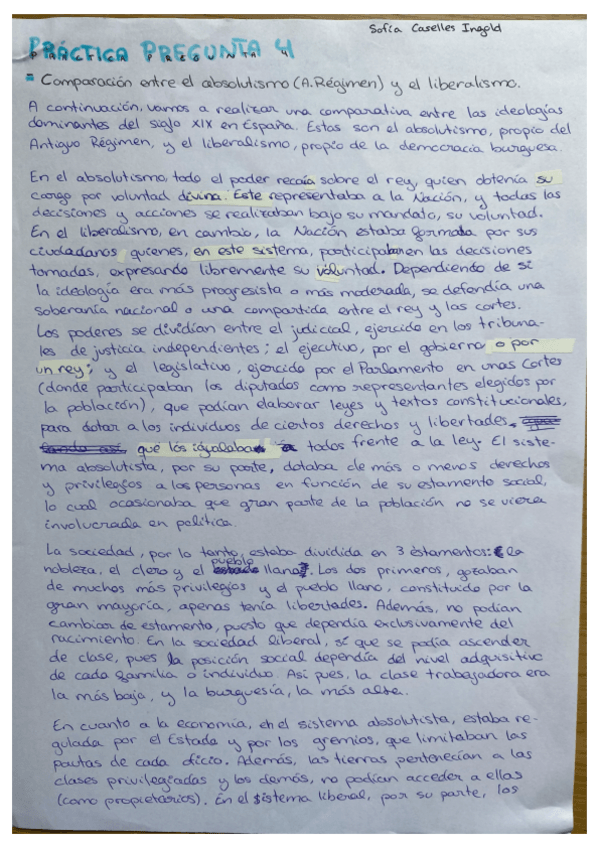 Sofía Caselles Ingold
PRÁCTICA PREGUNTA 4
PRÁCTICA PREGUNTA 4
= Comparación entre el absolutismo (A.Régimen) y el liberalismo.
A continuación, vamos a realizar una comparativa entre las ideologías
dominantes del siglo XIX en España. Estas son el absolutismo, propio del
Antiguo Régimen, y el liberalismo, propio de la democracia burguesa.
En el absolutismo, todo el poder recaía sobre el rey, quien obtenía su
cargo por voluntad divina. Este representaba a la Nación, y todas las
decisiones y acciones se realizaban bajo su mandato, su voluntad.
En el liberalismo, en cambio, la Nación estaba formada por sus
ciudadanos quienes, en este sistema, participaban en las decisiones
tomadas, expresando libremente su voluntad. Dependiendo de si
la ideología era más progresista o más moderada, se defendía una
soberanía nacional o una compartida entre el rey y las cortes.
Los poderes se dividían entre el judicial, ejercido en los tribuna-
les de justicia independientes; el ejecutivo, por el gobierno o por
un rey; y el legislativo, ejercido por el Parlamento en unas Cortes
(donde participaban los diputados como representantes elegidos por
la población), que podían elaborar leyes y textos constitucionales,
para dotar a los individuos de ciertos derechos y libertades,
que los igualaba a todos frente a la ley. El siste-
ma absolutista, por su parte, dotaba de más o menos derechos
y privilegios a las personas en función de su estamento social,
lo cual ocasionaba que gran parte de la población no se viera
involucrada en política.
La sociedad, por lo tanto, estaba dividida en 3 estamentos: la
nobleza, el clero y el pueblo llano. Los dos primeros, gozaban
de muchos más privilegios y el pueblo llano, constituido por la
gran mayoría, apenas tenía libertades. Además, no podían
cambiar de estamento, puesto que dependía exclusivamente del
nacimiento. En la sociedad liberal, sí que se podía ascender
de clase, pues la posición social dependía del nivel adquisitivo
de cada familia o individuo. Así pues, la clase trabajadora era
la más baja, y la burguesía, la más alta.
En cuanto a la economía, en el sistema absolutista, estaba re-
gulada por el Estado y por los gremios, que limitaban las
pautas de cada oficio. Además, las tierras pertenecían a las
clases privilegiadas y los demás, no podían acceder a ellas
(como propietarios). En el sistema liberal, por su parte, los